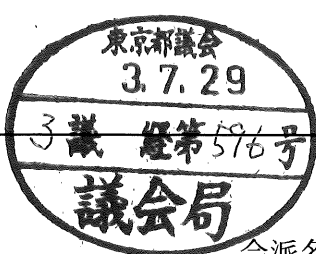 東京都議会
3.7.29
3議 経第596号
議会局
会派名